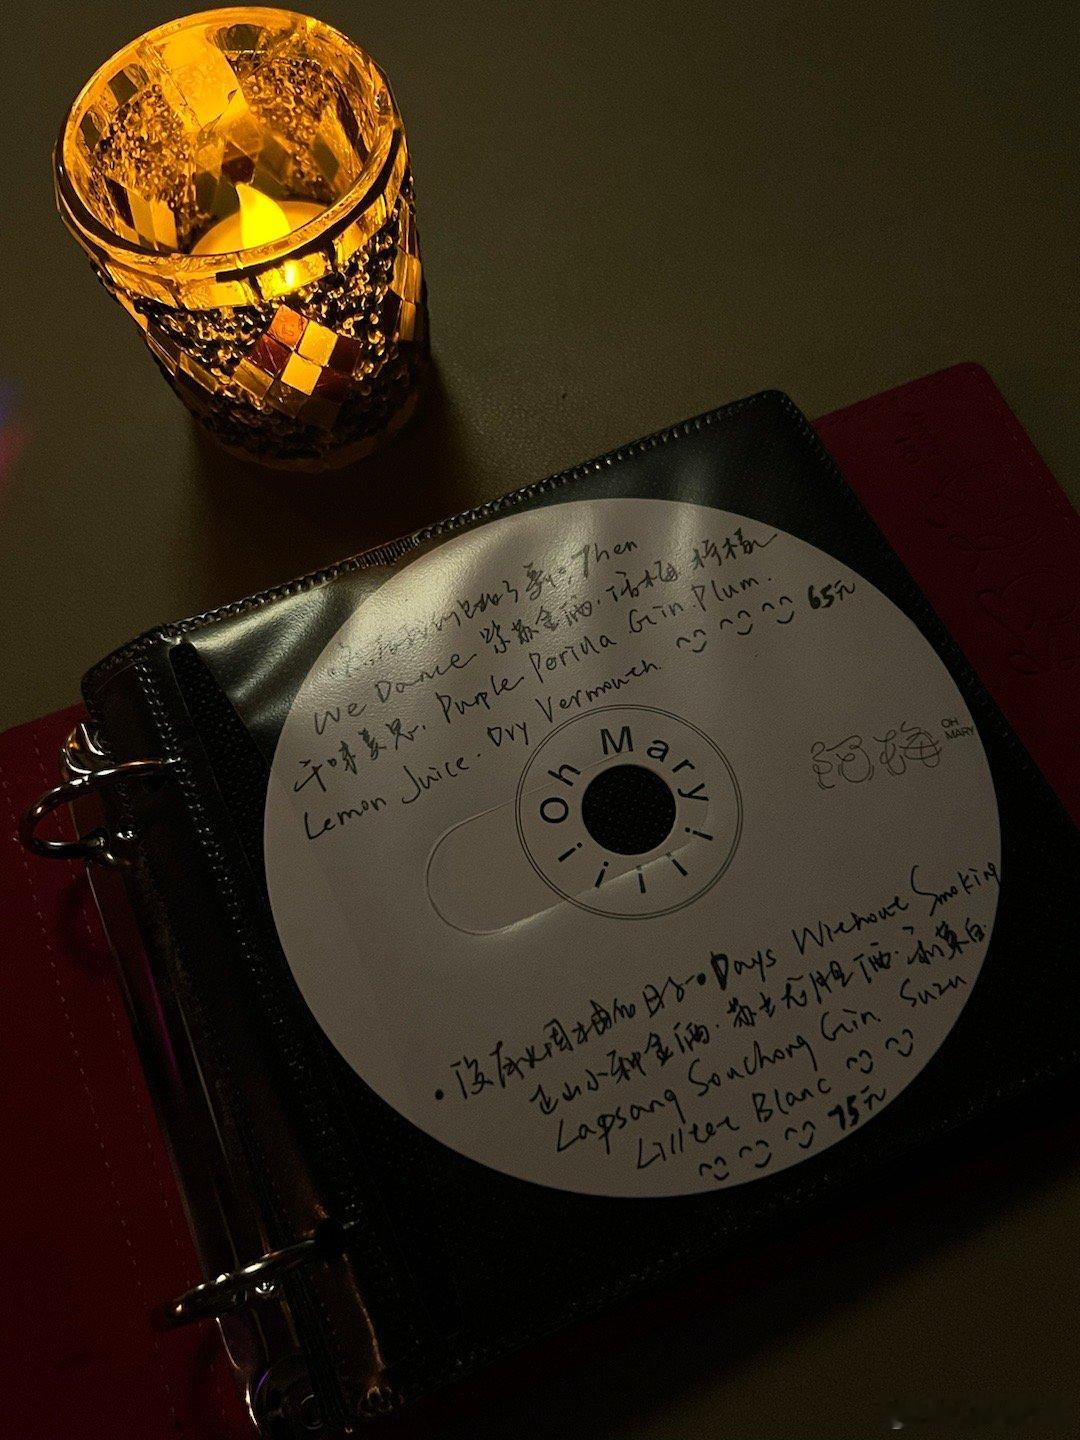 Then
We Dance 紫苏金酒·话梅 柠檬
干味美思. Purple Perilla Gin. Plum.
Lemon Juice. Dry Vermouth. 65元
Oh Mary!!!!!
阿梅 OH MARY
·没有烟抽的日子·Days Without Smoking
正山小种金酒. 苏士龙胆酒. 利莱白
Lapsang Souchong Gin. Suzu
Lilltet Blanc
75元